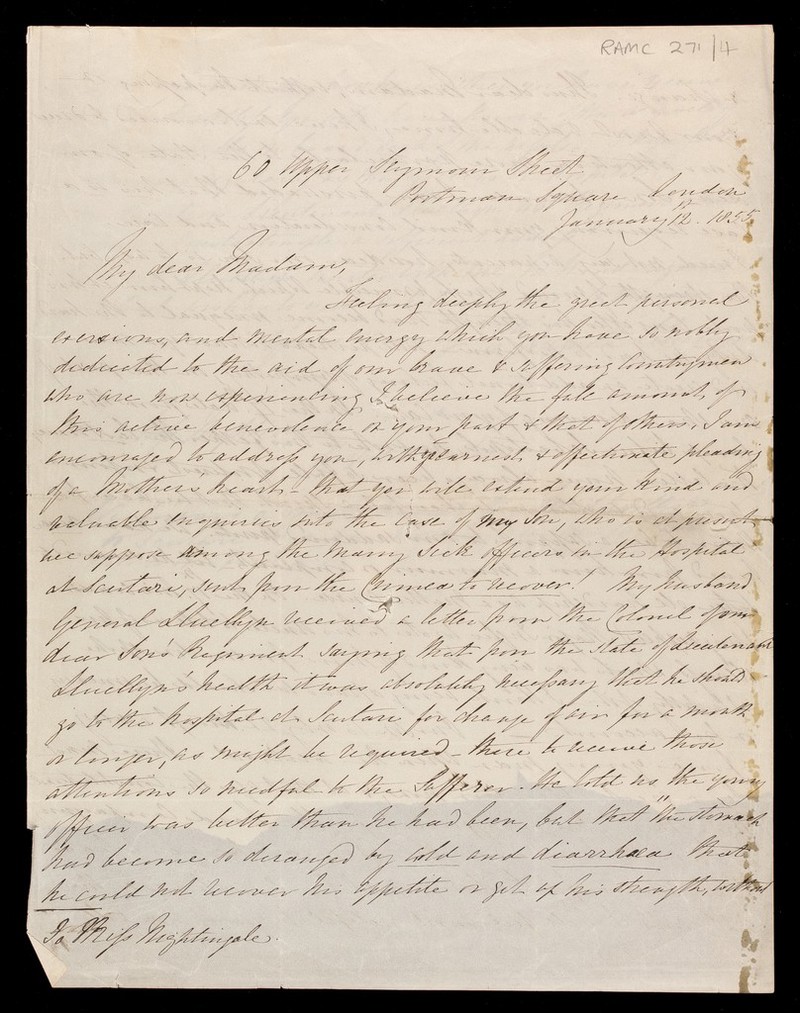 RAMC 271/4
60 Upper Seymour Street
Portman Square London
January 12th. 1855
My dear Madam,
Feeling deeply the great personal
exertions, and mental energy which you have so nobly
dedicated to the aid of our brave & suffering Countrymen
who are now experiencing I believe the full amount of
this active benevolence on your part & that of others, I am
encouraged to address you, with the earnest & affectionate pleading
of a Mother's heart - that you will extend your kind and
valuable enquiries into the case of my Son, who is at present
we suppose among the many Sick Officers in the Hospital
at Scutari, sent from the Crimea to recover! My husband
General Lluellyn received a letter from the Colonel of our
dear Son's Regiment saying that from the state of Lieutenant
Lluellyn's health it was absolutely necessary that he should
go to the hospital at Scutari for change of air for a month
or longer, as might be required - there to receive those
attentions so needful to the Sufferer. He told us the young
officer was better than he had been, but that "the stomach
had become so deranged by cold and diarrhœa that
he could not recover his appetite or get up his strength, without
To Miss Nightingale.